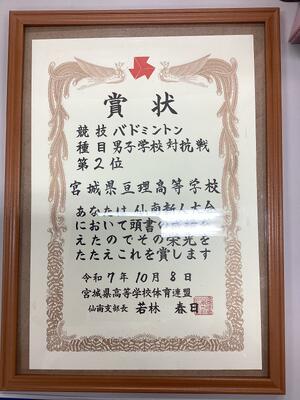 賞状
競技 バドミントン
種目 男子学校対抗戦
第2位
宮城県亘理高等学校
あなたは仙南新人大会
において頭書の成績を
えたのでその栄光を
たたえこれを賞します
令和7年10月8日
宮城県高等学校体育連盟
仙南支部長 若林 春日